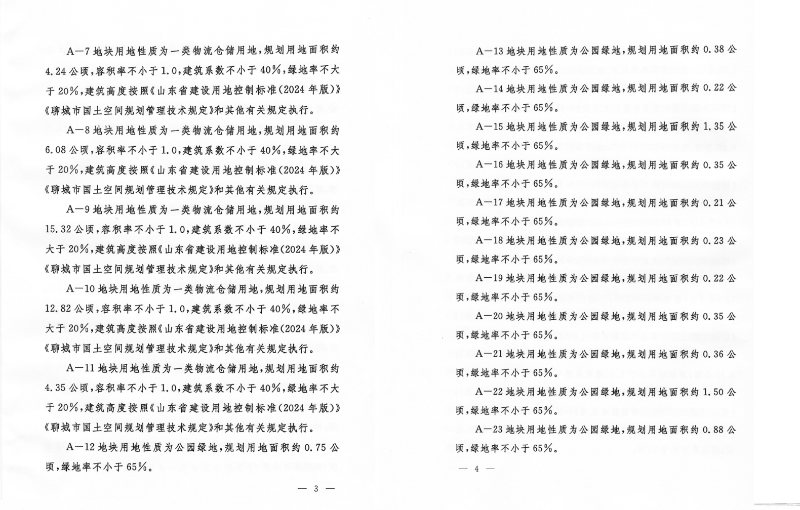 A—7地块用地性质为一类物流仓储用地,规划用地面积约
4.24公顷,容积率不小于1.0,建筑系数不小于40%,绿地率不大
于20%,建筑高度按照《山东省建设用地控制标准(2024年版)》
《聊城市国土空间规划管理技术规定》和其他有关规定执行。
A—8地块用地性质为一类物流仓储用地,规划用地面积约
6.08公顷,容积率不小于1.0,建筑系数不小于40%,绿地率不大
于20%,建筑高度按照《山东省建设用地控制标准(2024年版)》
《聊城市国土空间规划管理技术规定》和其他有关规定执行。
A—9地块用地性质为一类物流仓储用地,规划用地面积约
15.32公顷,容积率不小于1.0,建筑系数不小于40%,绿地率不
大于20%,建筑高度按照《山东省建设用地控制标准(2024年版)》
《聊城市国土空间规划管理技术规定》和其他有关规定执行。
A—10地块用地性质为一类物流仓储用地,规划用地面积约
12.82公顷,容积率不小于1.0,建筑系数不小于40%,绿地率不
大于20%,建筑高度按照《山东省建设用地控制标准(2024年版)》
《聊城市国土空间规划管理技术规定》和其他有关规定执行。
A—11地块用地性质为一类物流仓储用地,规划用地面积约
4.35公顷,容积率不小于1.0,建筑系数不小于40%,绿地率不大
于20%,建筑高度按照《山东省建设用地控制标准(2024年版)》
《聊城市国土空间规划管理技术规定》和其他有关规定执行。
A—12地块用地性质为公园绿地,规划用地面积约0.75公
顷,绿地率不小于65%。
— 3 —
A—13地块用地性质为公园绿地,规划用地面积约0.38公
顷,绿地率不小于65%。
A—14地块用地性质为公园绿地,规划用地面积约0.22公
顷,绿地率不小于65%。
A—15地块用地性质为公园绿地,规划用地面积约1.35公
顷,绿地率不小于65%。
A—16地块用地性质为公园绿地,规划用地面积约0.35公
顷,绿地率不小于65%。
A—17地块用地性质为公园绿地,规划用地面积约0.21公
顷,绿地率不小于65%。
A—18地块用地性质为公园绿地,规划用地面积约0.23公
顷,绿地率不小于65%。
A—19地块用地性质为公园绿地,规划用地面积约0.22公
顷,绿地率不小于65%。
A—20地块用地性质为公园绿地,规划用地面积约0.35公
顷,绿地率不小于65%。
A—21地块用地性质为公园绿地,规划用地面积约0.36公
顷,绿地率不小于65%。
A—22地块用地性质为公园绿地,规划用地面积约1.50公
顷,绿地率不小于65%。
A—23地块用地性质为公园绿地,规划用地面积约0.88公
顷,绿地率不小于65%。
— 4 —